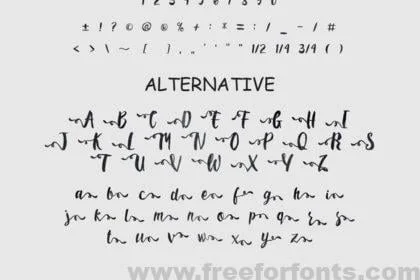 1 2 3 4 5 6 7 8 9 0
± ! ? © ® @ % ÷ : * = : / _ - / #
< > \ ~ [ ] , „ ' ' " " 1/2 1/4 3/4 ( )
ALTERNATIVE
A B C D E F G H I
J K L M N O P Q R S
T U V W X Y Z
a b c d e f g h i
j k l m n o p q r s
t u v w x y z
www.freeforfonts.com